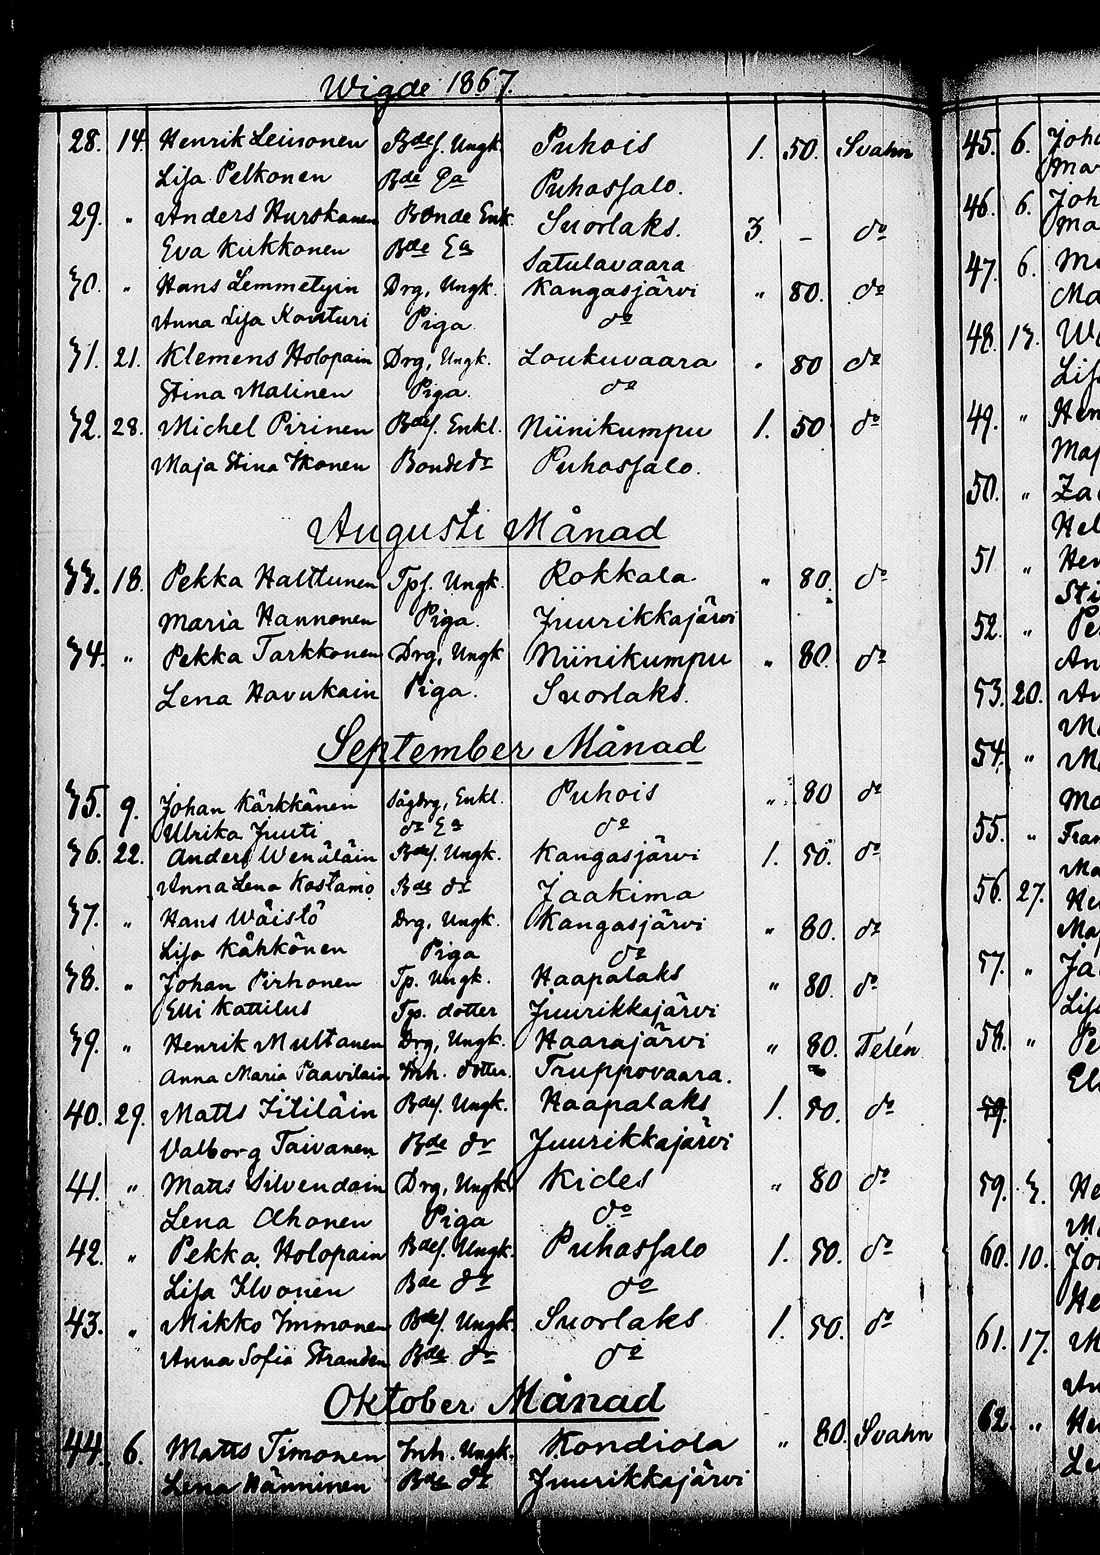 Wigde 1867.
28. 14. Henrik Leinonen Bdes. Ungk. Puhois 1. 50. Svahn
Lisa Pelkonen Bde Ea Puhossalo.
29. " Anders Hurskanen Bonde Enk. Suorlaks. 3. – do
Eva Kukkonen Bde Ea Satulavaara
30. " Hans Lemmetyin Drg, Ungk. Kangasjärvi " 80. do
Anna Lisa Kontturi Piga do
31. 21. Klemens Holopain Drg, Ungk. Loukuvaara " 80 do
Stina Malinen Piga. do
32. 28. Michel Pirinen Bdes. Enkl. Niinikumpu 1. 50 do
Maja Stina Ikonen Bonde dr Puhossalo.
Augusti Månad
33. 18. Pekka Halttunen Tps. Ungk. Rokkala " 80. do
Maria Hannonen Piga. Juurikkajärvi
34. " Pekka Tarkkonen Drg, Ungk Niinikumpu " 80. do
Lena Havukain Piga. Suorlaks.
September Månad
35. 9. Johan Kärkkänen Sågdrg, Enkl. Puhois " 80 do
Ulrika Juuti do Ea do
36. 22. Anders Wenäläin Bdes. Ungk. Kangasjärvi 1. 50. do
Anna Lena Kostamo Bde dr Jaakima
37. " Hans Wäistö Drg, Ungk. Kangasjärvi " 80. do
Lisa Kähkönen Piga do
38. " Johan Pirhonen Tp. Ungk. Haapalaks " 80. do
Elli Kattilus Tp. dotter Juurikkajärvi
39. " Henrik Multanen Drg, Ungk. Haarajärvi " 80. Telén
Anna Maria Paavilain Inh. dotter. Truppovaara.
40. 29. Matts Iitiläin Bdes. Ungk. Haapalaks 1. 50. do
Valborg Taivanen Bde dr Juurikkajärvi
41. " Matts Silvendain Drg, Ungk. Kides " 80 do
Lena Ahonen Piga do
42. " Pekka Holopain Bdes. Ungk. Puhossalo 1. 50. do
Lisa Ilvonen Bde dr do
43. " Mikko Immonen Bdes. Ungk. Suorlaks 1. 50. do
Anna Sofia Stranden Bde dr do
Oktober Månad
44. 6. Matts Timonen Inh. Ungk. Kondiola " 80. Svahn
Lena Hänninen Bde dr Juurikkajärvi
45. 6. Joha
Mar
46. 6. Joh
Ma
47. 6. Ma
48. 13. W
Lis
49. " Hen
Maj
50. " Za
Hel
51 " Hen
Sti
52. " Pe
An
53. 20. An
M
54. " Ma
Ma
55. " Fran
Ma
56. 27. He
Maj
57. " Ja
Lis
58. " Pe
El
59.
59. 3. He
Ma
60. 10. Jo
He
61. 17. M
An
62. " He
Le